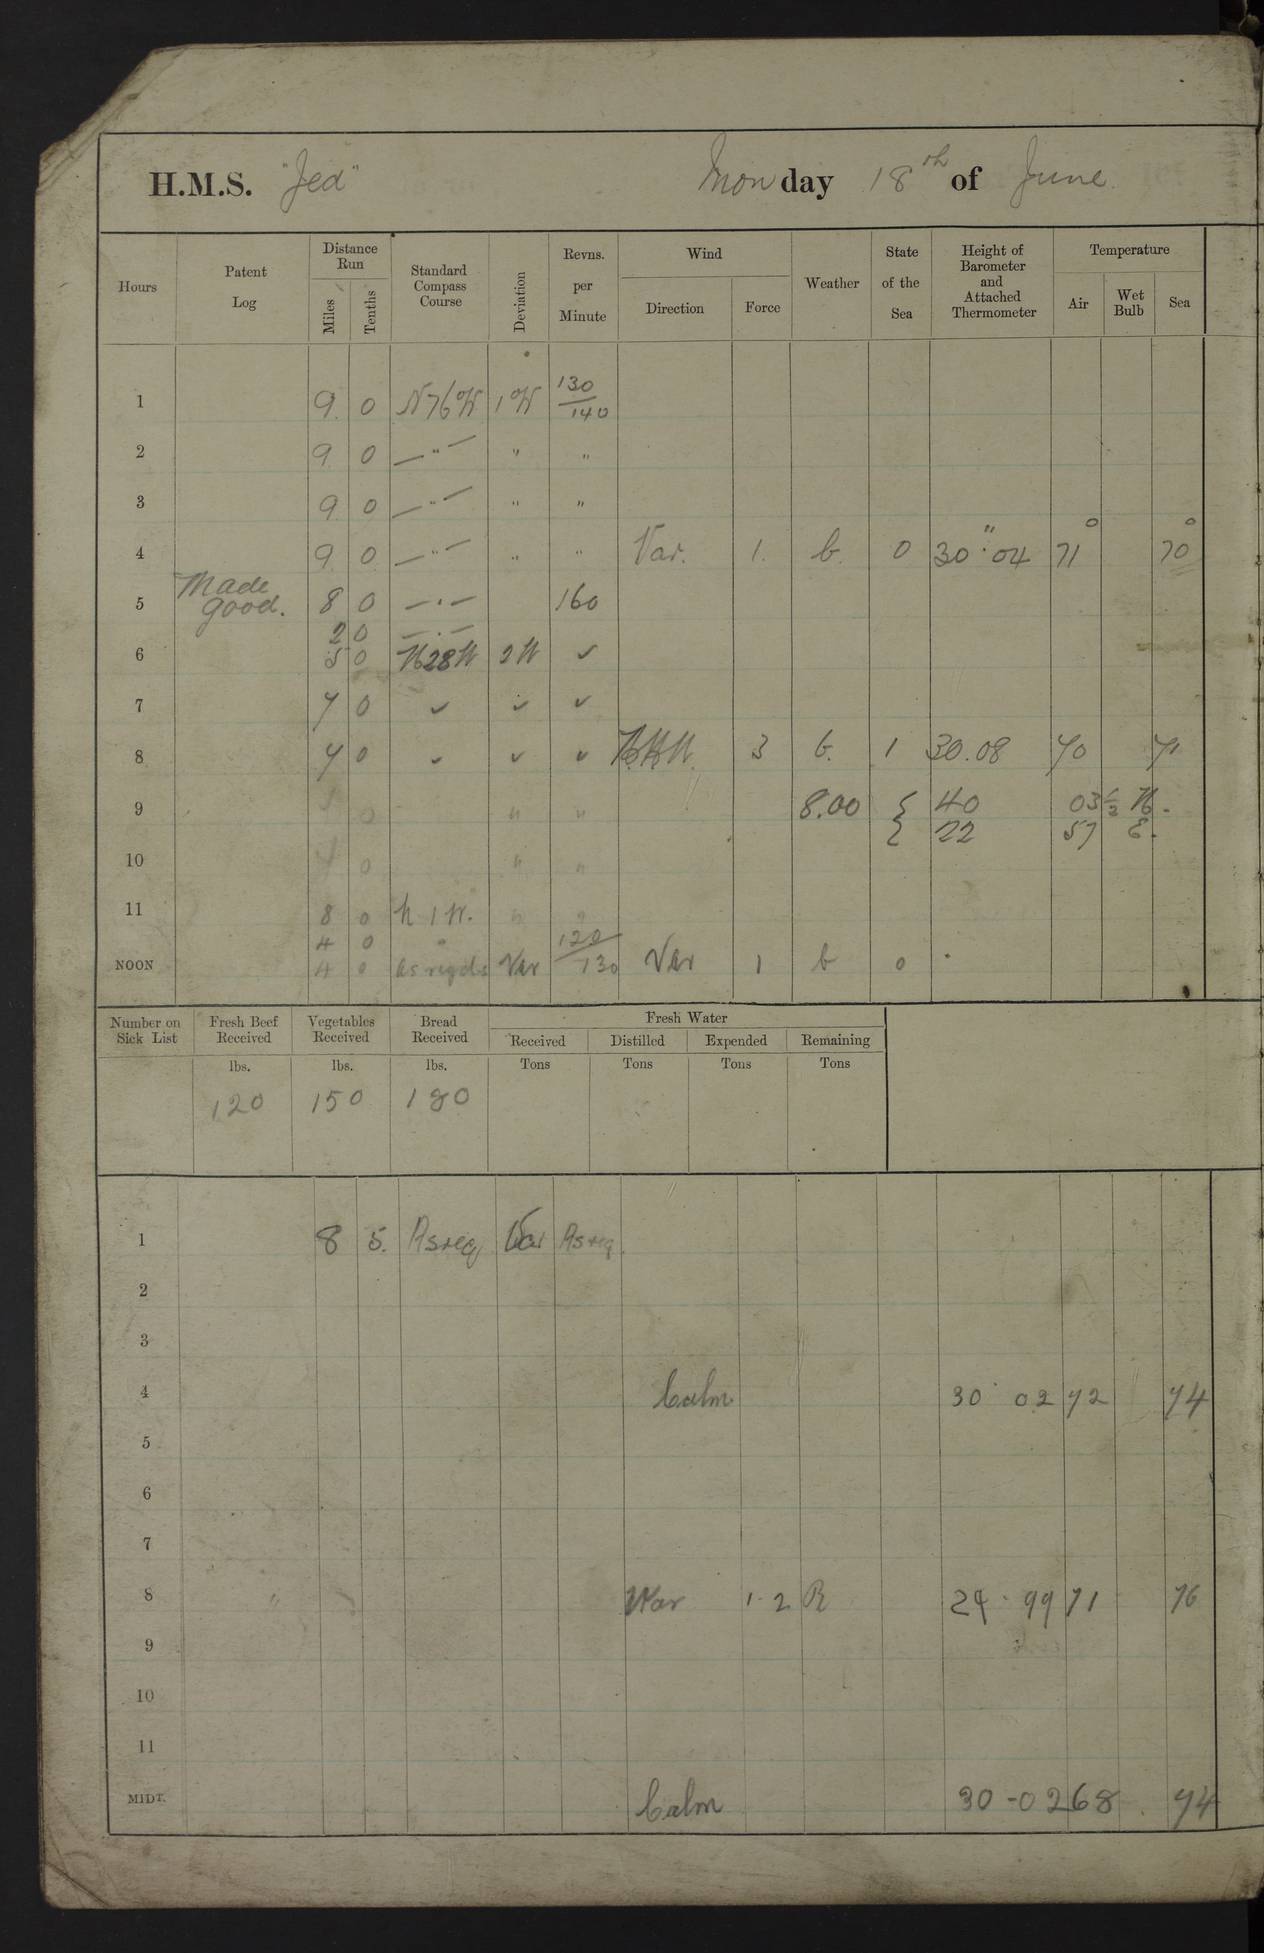 H.M.S. "Jed" Monday 18th of June
Hours Patent Log Distance Run Miles Tenths Standard Compass Course Deviation Revns. per Minute Wind Direction Force Weather State of the Sea Height of Barometer and Attached Thermometer Temperature Air Wet Bulb Sea
1 9 0 N76W 1W 130/140
2 9 0 —"— " "
3 9 0 —"— " "
4 9 0 —"— " " Var. 1. b. 0 30".04 71° 70°
5 Made good. 8 0 —"— 160
2 0 —"—
6 5 0 N28W 2W ✓
7 7 0 ✓ ✓ ✓
8 7 0 ✓ ✓ ✓ 3 b. 1 30.08 70 71
9 0 " " 8.00 { 40 03½ N.
22 57 E.
10 7 0 " "
11 8 0 N 1 W. " "
4 0
NOON 4 0 as reqds Var 120/130 Var 1 b 0
Number on Sick List Fresh Beef Received Vegetables Received Bread Received Fresh Water
Received Distilled Expended Remaining
lbs. lbs. lbs. Tons Tons Tons Tons
120 150 180
1 8 5. As req Var As req.
2
3
4 Calm 30 02 72 74
5
6
7
8 Var 1.2 R 29.99 71 76
9
10
11
MIDT. Calm 30-02 68 74